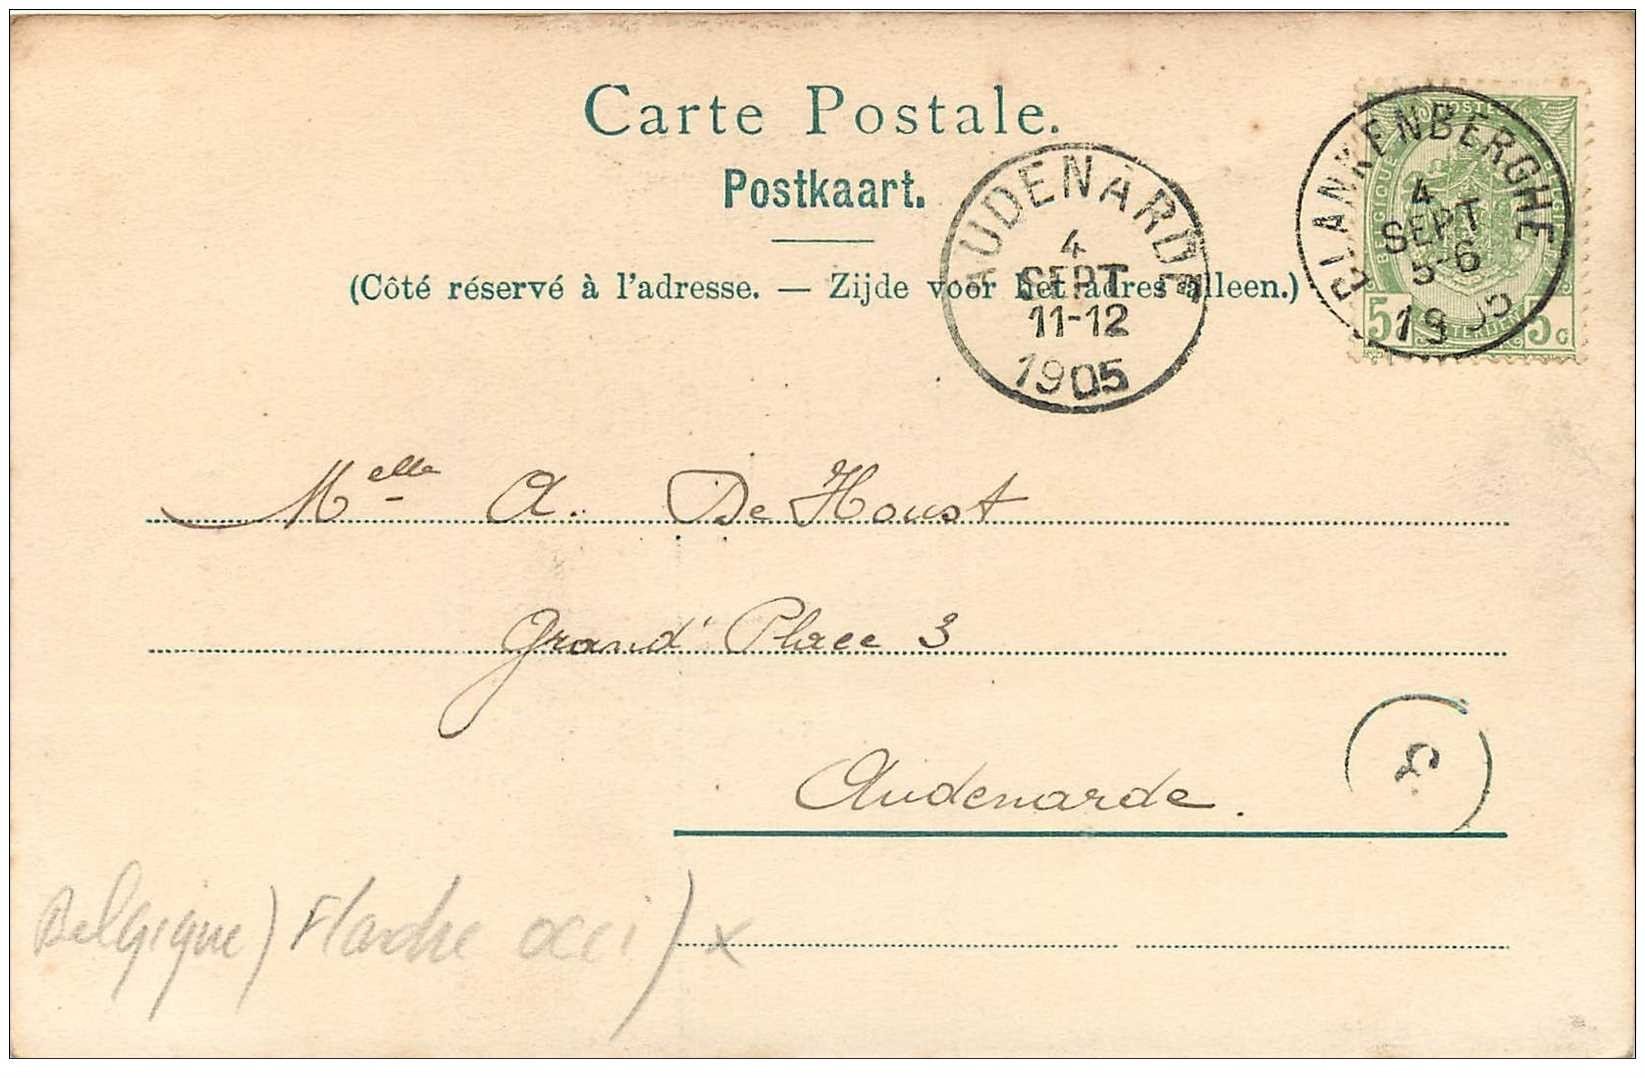 Carte Postale.
Postkaart.
(Côté réservé à l'adresse. — Zijde voor het adres alleen.)
AUDENARDE
4
SEPT
11-12
1905
BLANKENBERGHE
4
SEPT
5-6
1905
POSTE
BELGIQUE
5 5 c
Melle A. De Houst
Grand' Place 3
Audenarde.
Belgique) Flandre occi) x